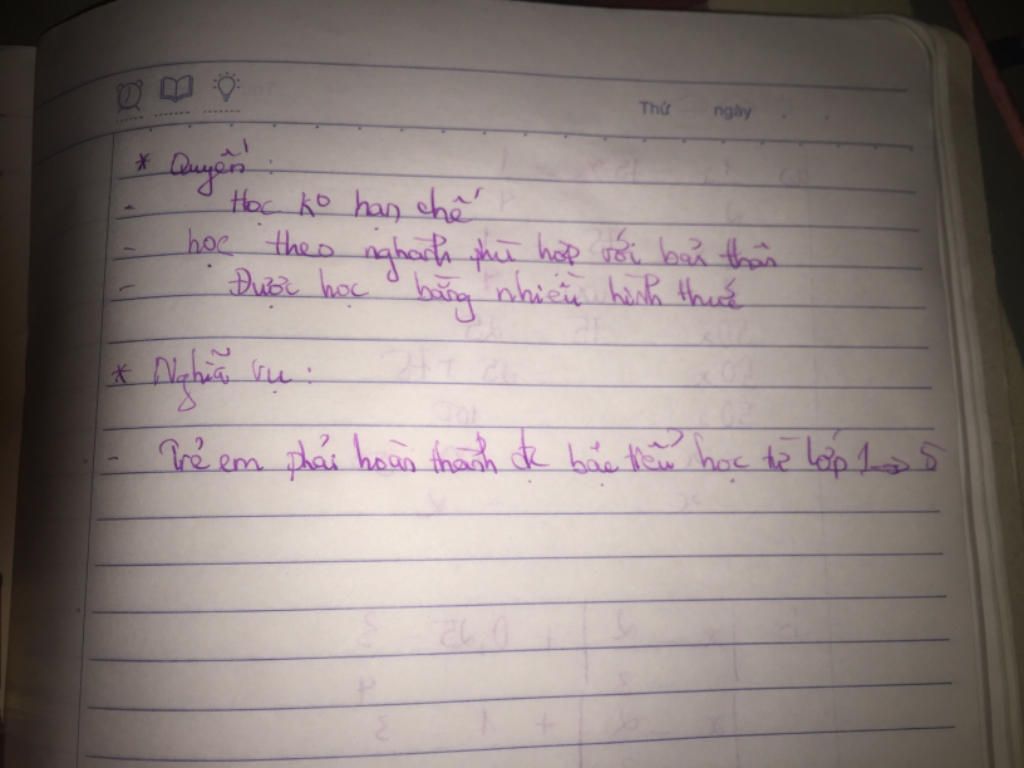 Thứ ngày
* Quyền:
- Học ko hạn chế
- học theo nghành phù hợp với bản thân
- Được học bằng nhiều hình thức
* Nghĩa vụ:
- Trẻ em phải hoàn thành đk bậc tiểu học từ lớp 1 → 5